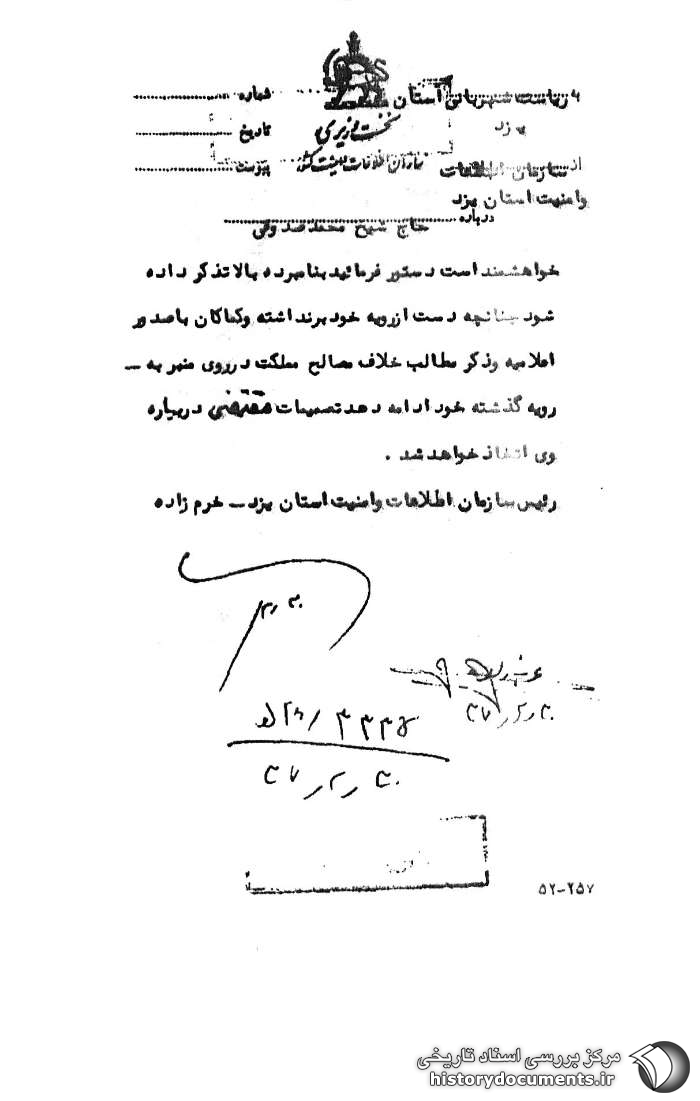 به ریاست شهربانی استان
یزد
شماره
نخست وزیری
تاریخ
سازمان اطلاعات و امنیت کشور
پیوست
از سازمان اطلاعات
وامنیت استان یزد
درباره حاج شیخ محمد صدوقی
خواهشمند است دستور فرمائید بنامبرده بالا تذکر داده
شود چنانچه دست ازرویه خود برنداشته وکماکان باصدور
اعلامیه وذکر مطالب خلاف مصالح مملکت درروی منبر به –
رویه گذشته خود ادامه دهد تصمیمات مقتضی درباره
وی اتخاذ خواهد شد .
رئیس سازمان اطلاعات وامنیت استان یزد – خرم زاده
۵۲-۲۵۷
مرکز بررسی اسناد تاریخی
historydocuments.ir